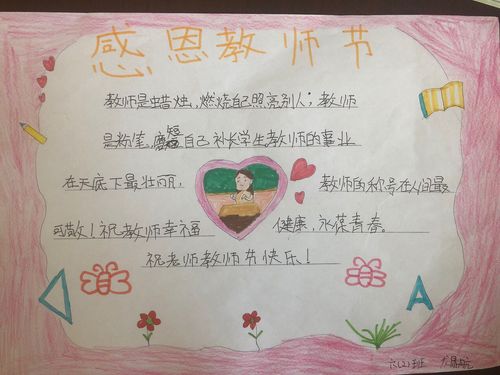 感恩教师节
教师是蜡烛，燃烧自己照亮别人；教师
是粉笔，磨短自己补长学生教师的事业
在天底下最壮丽， 教师的称号在人间最
可敬！祝教师幸福 健康，永葆青春。
祝老师教师节快乐！
A
六（2）班